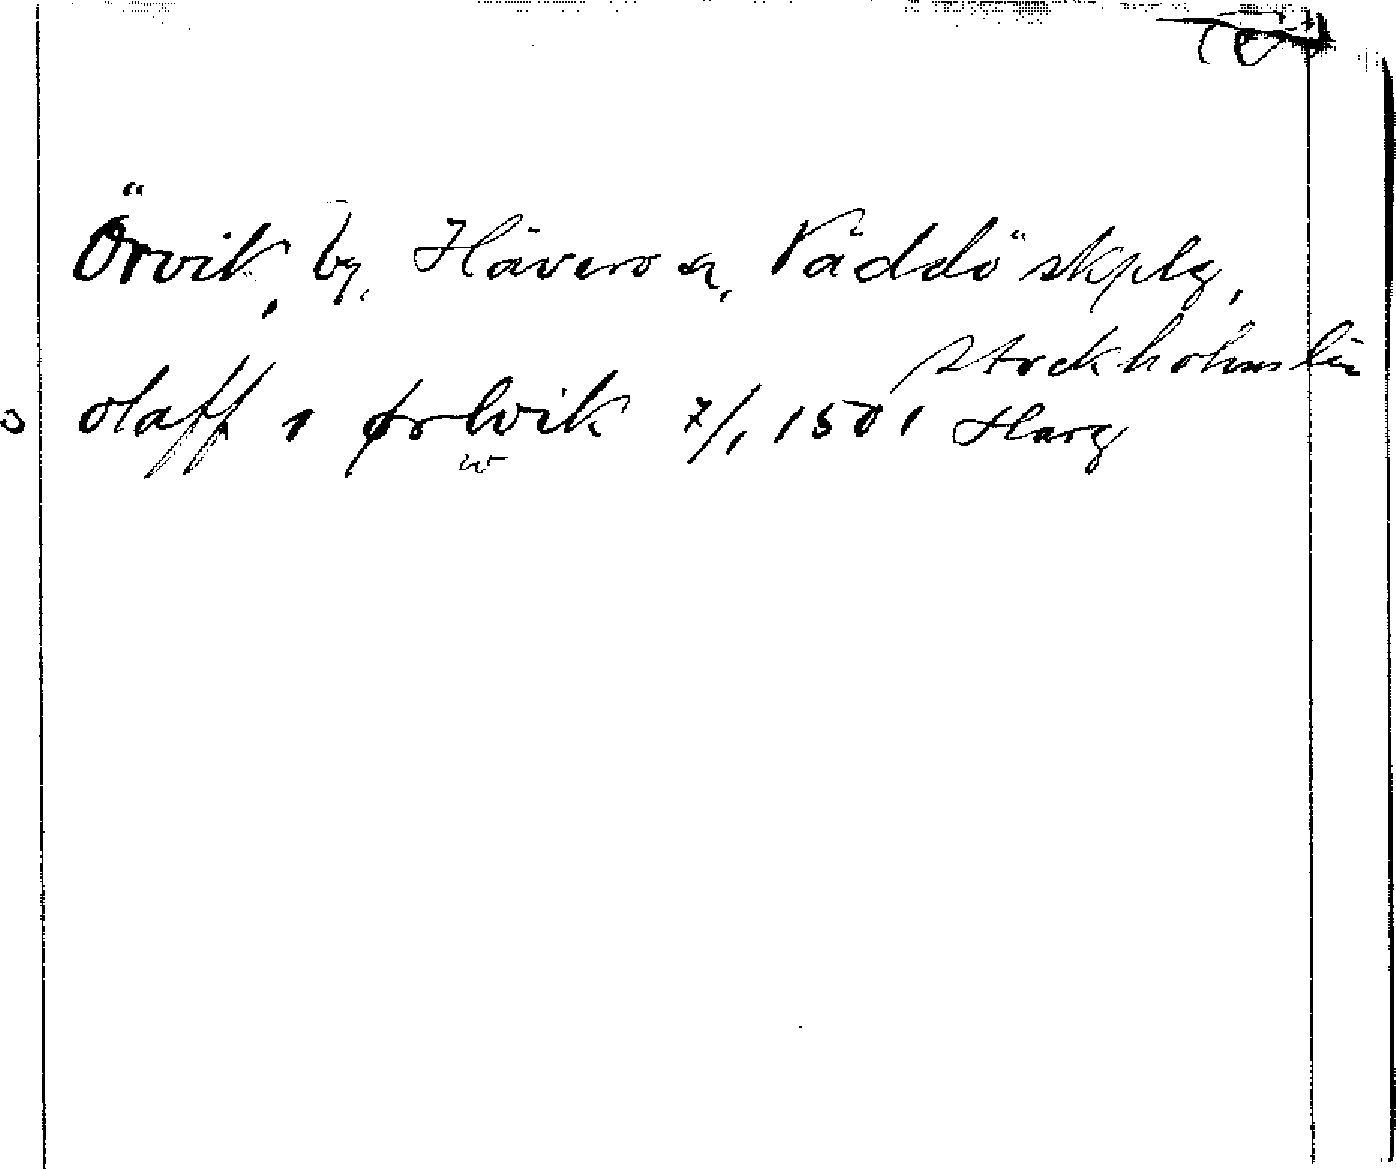 Örvik, by, Hävero sn, Väddö skplg,
Stockholms län
olaff ı ørlwik 7/1 1501 Harg
w